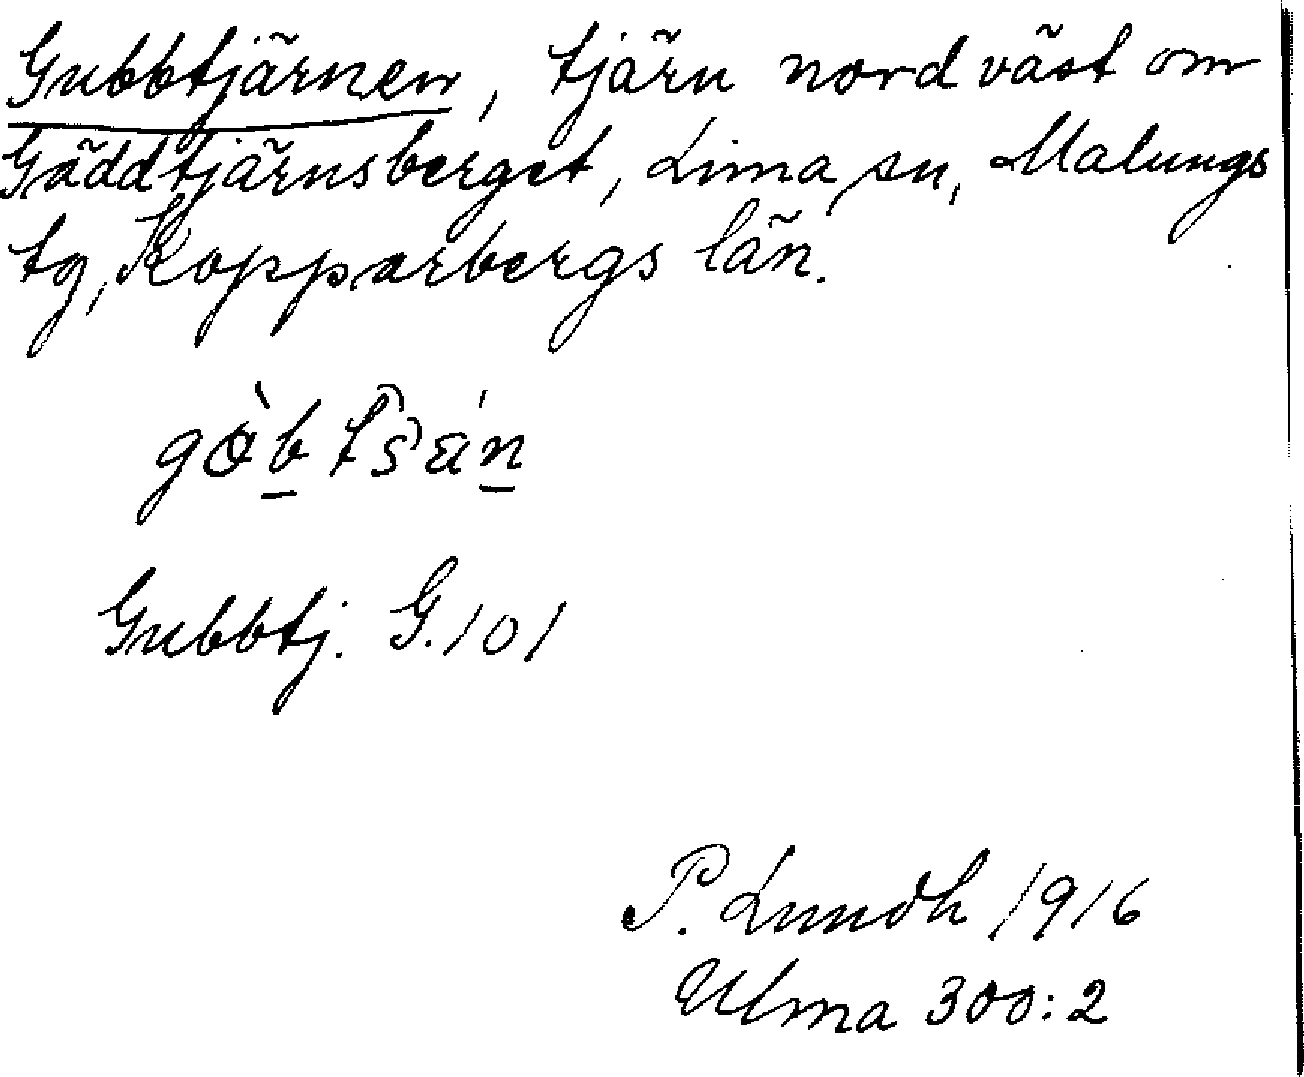 Gubbtjärnen, tjärn nordväst om
Gäddtjärnsberget, Lima sn, Malungs
tg, Kopparbergs län.
Gubbtj. G.101
P. Lundh 1916
Ulma 300:2